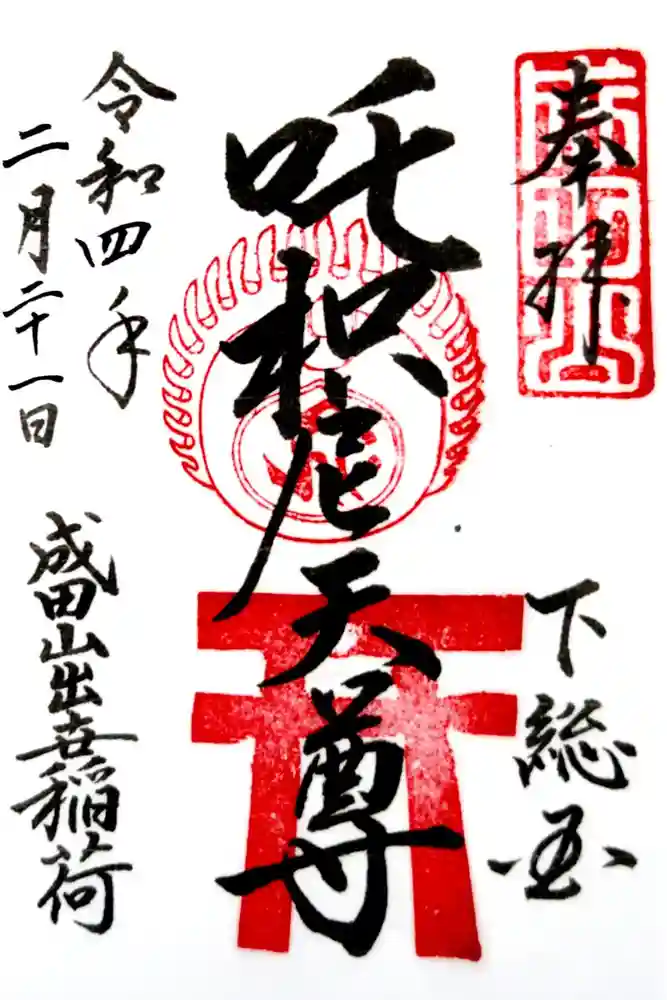 奉拝
下総国
吒枳尼天尊
令和四年
二月二十一日
成田山出世稲荷